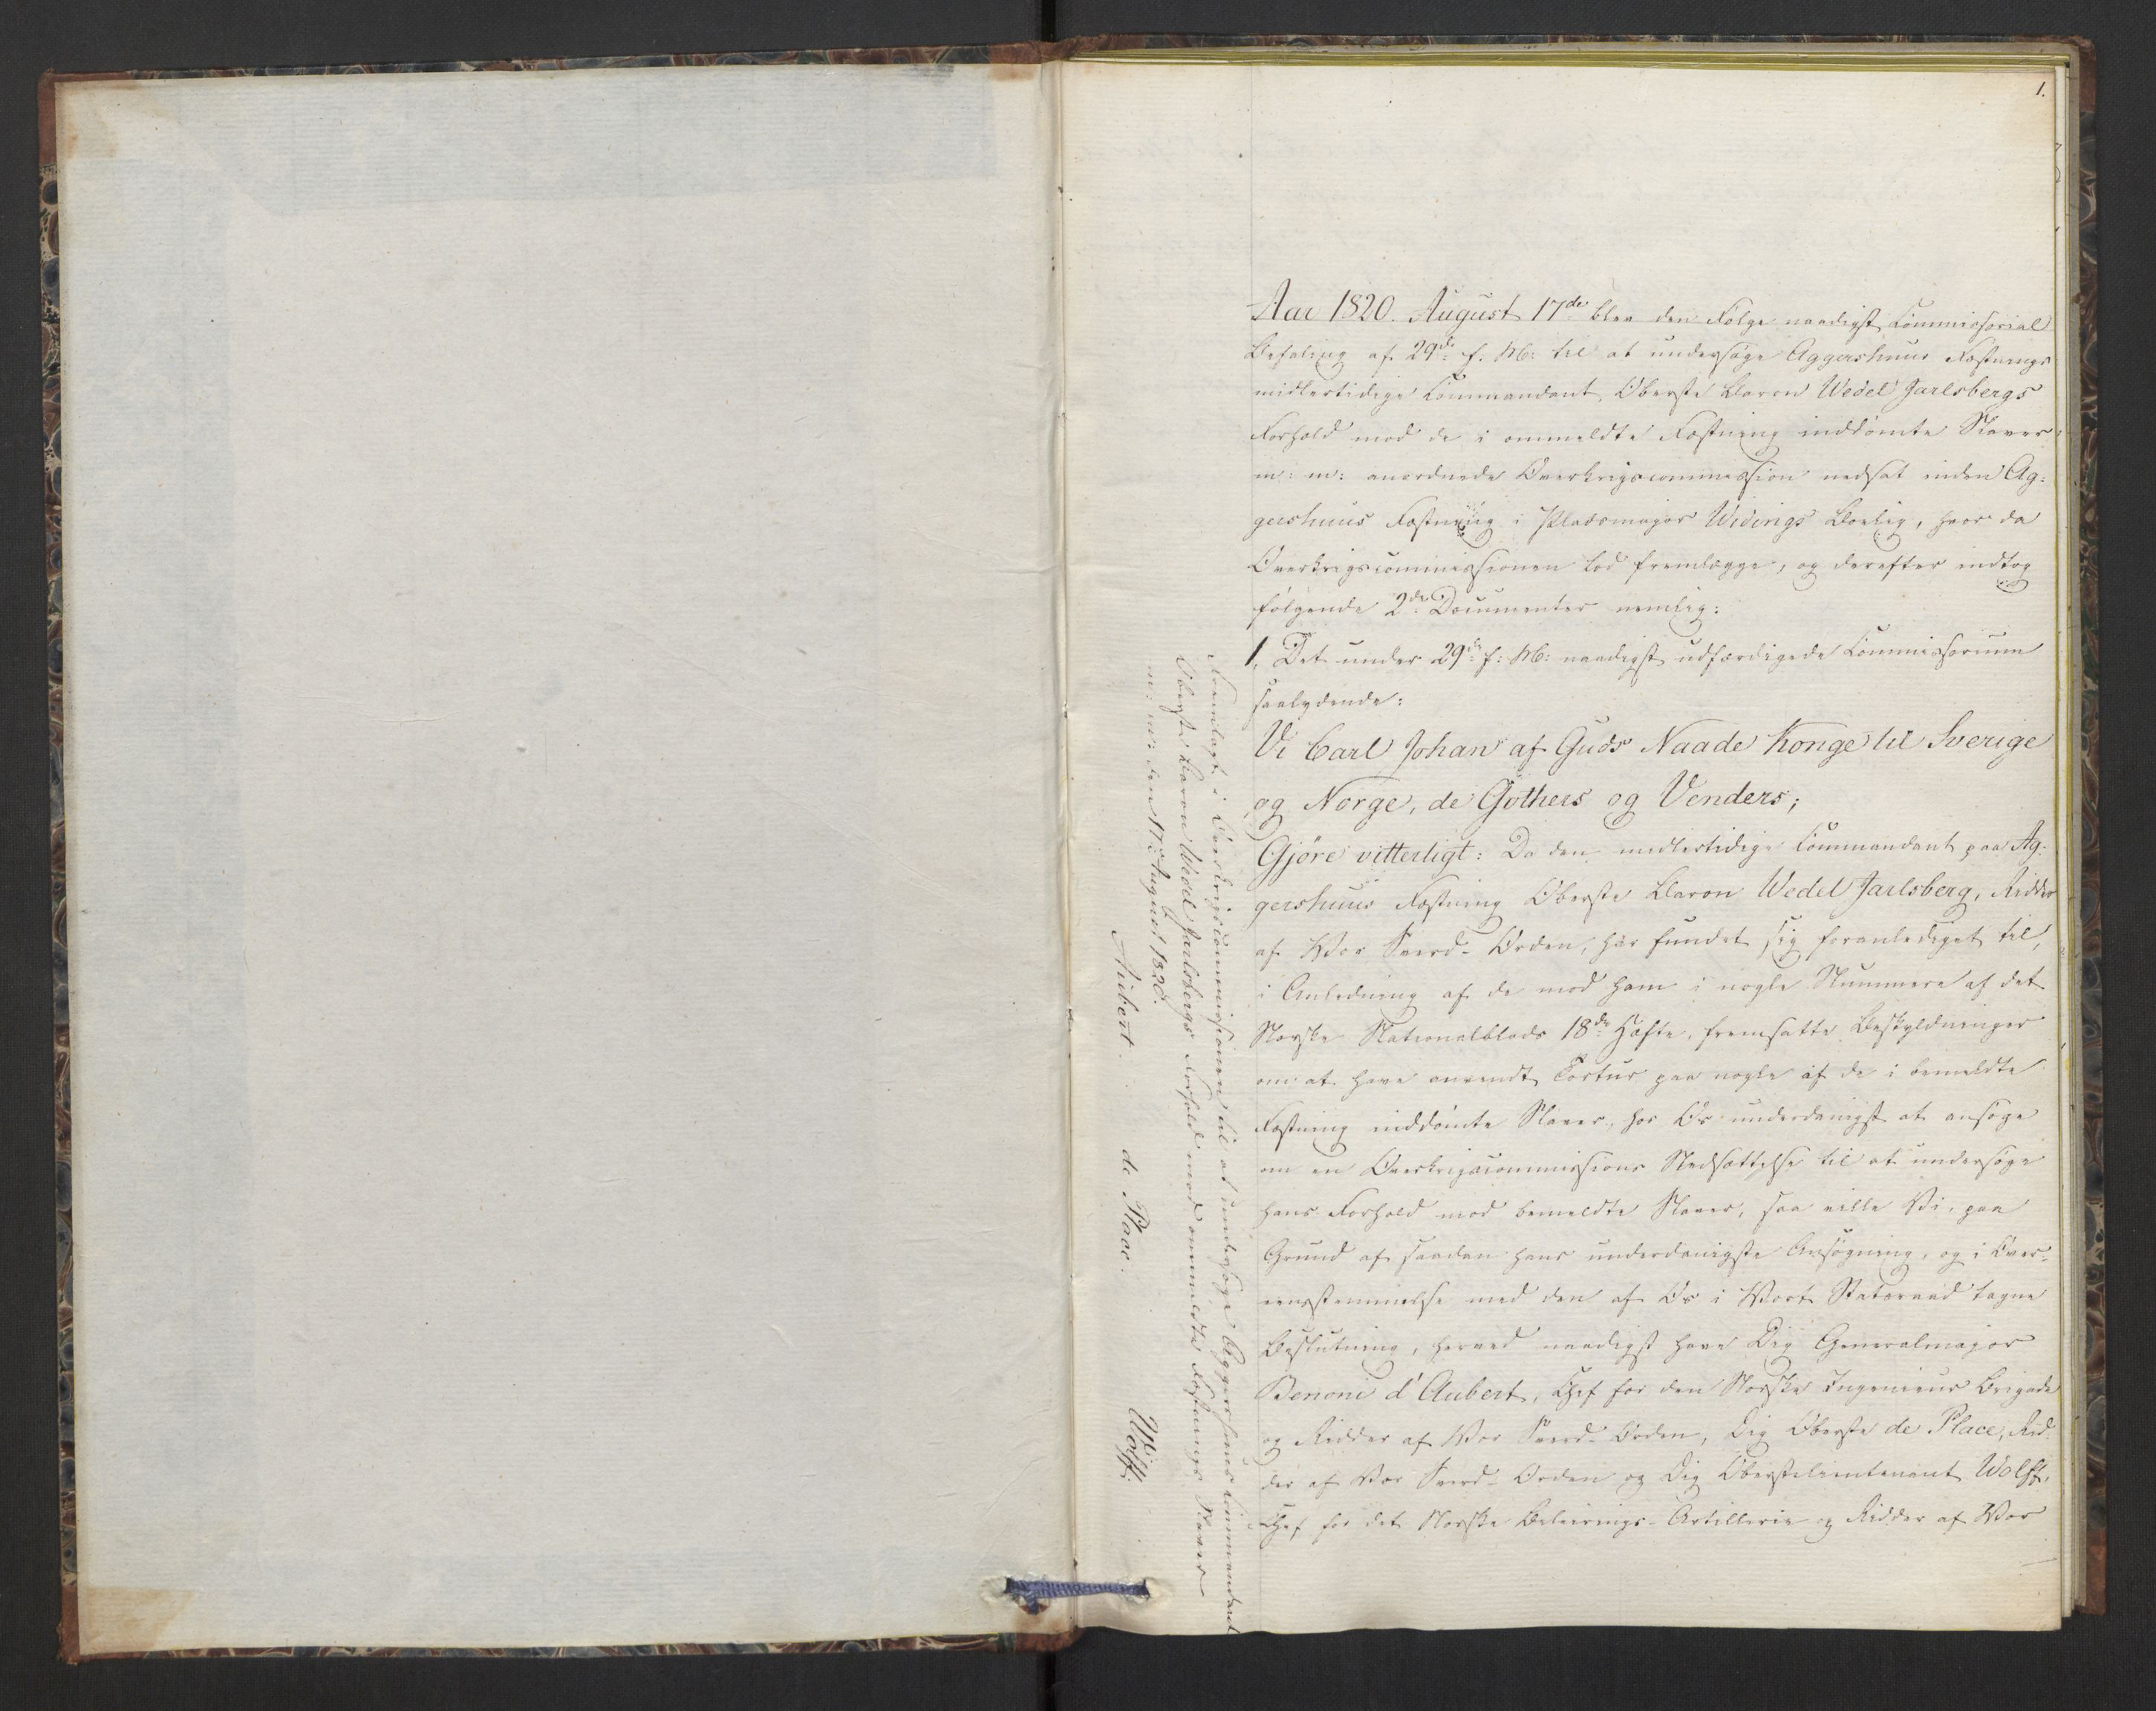 1.
Aar 1820. August 17de blev den Følge naadigst Commissorial
Befaling af 29de f. M: til at undersøge Aggershuus Fæstnings
midlertidige Commandant, Oberste Baron Wedel Jarlsbergs
Forhold mod de i ommeldte Fæstning inddømte Slaver
m: m: anordnede Overkrigscommission nedsat inden Ag:
gershuus Fæstning i Pladsmajor Widings Boelig, hvor da
Overkrigscommissionen lod fremlægge, og derefter indtog
følgende 2de Documenter nemlig:
1. Det under 29de f: M: naadigst udfærdigede Commissorium
saalydende:
Vi Carl Johan af Guds Naade Konge til Sverige
og Norge, de Gothers og Venders;
Gjøre vitterligt: Da den midlertidige Commandant paa Ag:
gershuus Fæstning Oberste Baron Wedel Jarlsberg, Ridder
af Vor Sverd-Orden, har fundet sig foranlediget til,
i Anledning af de mod ham i nogle Nummere af det
Norske Nationalblads 18de Hæfte, fremsatte Beskyldninger
om at have anvendt Tortur paa nogle af de i bemeldte
Fæstning inddømte Slaver, hos Os underdanigst at ansøge
om en Overkrigscommissions Nedsættelse til at undersøge
hans Forhold mod bemeldte Slaver, saa ville Vi, paa
Grund af saadan hans underdanigste Ansøgning, og i Over-
eensstemmelse med den af Os i Vort Statsraad tagne
Beslutning, herved naadigst have Dig Generalmajor
Benoni d'Aubert, Chef for den Norske Ingenieur Brigade
og Ridder af Vor Sverd-Orden, Dig Oberste de Place, Rid:
der af Vor Sverd-Orden og Dig Oberstlieutenant Wolff,
Chef for det Norske Beleirings-Artillerie og Ridder af Vor
Fremlagt i Overkrigscommissionen til at undersøge Aggershuus Commandant
Oberste Baron Wedel Jarlsbergs Forhold mod ommeldte Fæstnings Slaver
m: m: den 17de August 1820.
Aubert. de Place. Wolff.